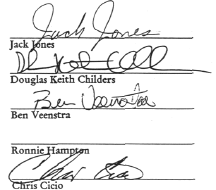 Jack Jones
Jack Jones
Douglas Keith Childers
Ben Veenstra
Ben Veenstra
Ronnie Hampton
Chris Cicio